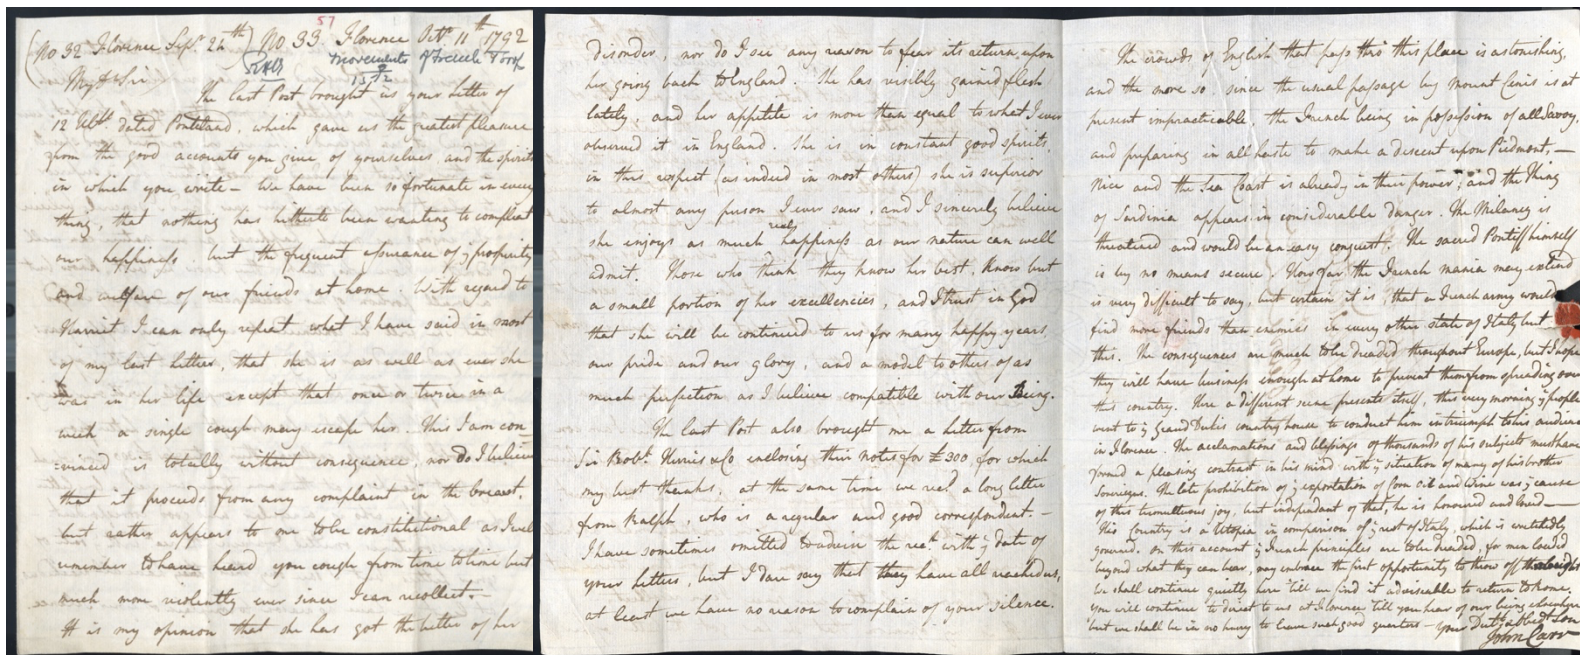 57
(No 32 Florence Sepr 24th) No 33 Florence Octr 11th 1792
Movements of French Troops
My Dr Sir
The last Post brought us your Letter of
12 Ulto dated Ponteland, which gave us the greatest pleasure
from the good accounts you give of yourselves, and the spirits
in which you write - We have been so fortunate in every
thing, that nothing has hitherto been wanting to compleat
our happiness, but the frequent assurance of ye prosperity
and welfare of our friends at home. With regard to
Harriet I can only repeat what I have said in most
of my last letters, that she is as well as ever she
was in her life except that once or twice in a
week a single cough may escape her. This I am con=
=vinced is totally without consequence, nor do I believe
that it proceeds from any complaint in the breast,
but rather appears to me to be constitutional as I well
remember to have heard you cough from time to time but
much more violently ever since I can recollect -
It is my opinion that she has got the better of her
disorder, nor do I see any reason to fear its return upon
her going back to England. She has visibly gained flesh
lately, and her appetite is more than equal to what I ever
observed it in England. She is in constant good spirits,
in this respect (as indeed in most others) she is superior
to almost any person I ever saw, and I sincerely believe
she enjoys as much real happiness as our nature can well
admit. Those who think they know her best, know but
a small portion of her excellencies, and I trust in God
that she will be continued to us for many happy years
our pride and our glory, and a model to others of as
much perfection as I believe compatible with our Being.
The last Post also brought me a Letter from
Sir Robt. Herries & Co enclosing their notes for £300 for which
my best thanks. at the same time we recd a long letter
from Ralph, who is a regular and good correspondent. -
I have sometimes omitted to advise the rect with ye date of
your letters, but I dare say that they have all reached us,
at least we have no reason to complain of your silence.
The crowds of English that pass thro' this place is astonishing,
and the more so, since the usual passage by mount Cenis is at
present impracticable, the French being in possession of all Savoy,
and preparing in all haste to make a descent upon Piedmont, -
Nice and the Sea Coast is already in their power, and the King
of Sardinia appears in considerable danger. The Milanese is
threatened and would be an easy conquest. The sacred Pontiff himself
is by no means secure. How far the French mania may extend
is very difficult to say, but certain it is that a French army would
find more friends than enemies in every other state of Italy but
this. The consequences are much to be dreaded throughout Europe, but I hope
they will have business enough at home to prevent them from spreading over
this country. Here a different scene presents itself, this very morning ye people
went to ye Grand Duke's country house to conduct him in triumph to his audience
in Florence. The acclamations and blessings of thousands of his subjects must have
formed a pleasing contrast in his mind with ye situation of many of his brother
Sovereigns. The late prohibition of ye exportation of Corn oil and wine was ye cause
of this tumultuous joy, but independant of that, he is honoured and loved -
His Country is a Utopia in comparison of ye rest of Italy, which is wretchedly
governed. On this account ye French principles are to be dreaded, for men loaded
beyond what they can bear, may embrace the first opportunity to throw off the weight
We shall continue quietly here till we find it adviseable to return to home.
You will continue to direct to us at Florence till you hear of our being elsewhere
but we shall be in no hurry to leave such good quarters - Your Dutl & affect Son
John Carr